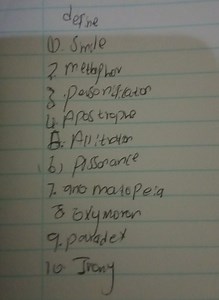 define
1). Smile
2. metaphor
3. personification
4. Apostrophe
5. Allitration
6) Assonance
7. onomatopeia
8 oxymoron
9. paradox
10. Irony